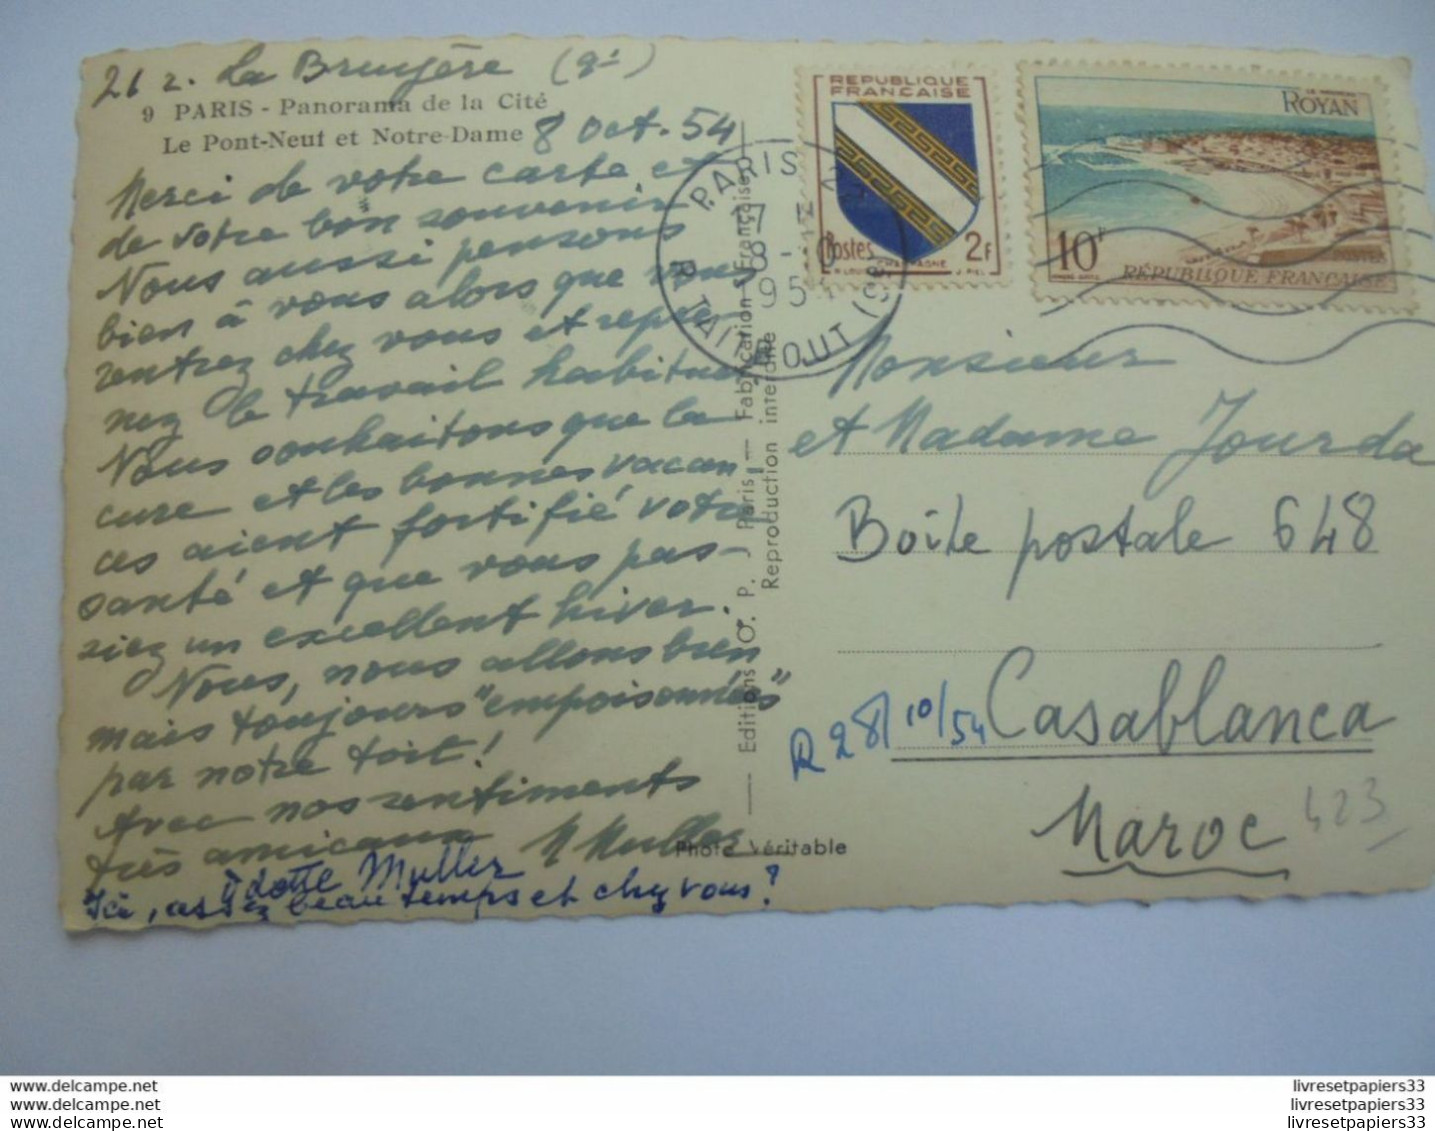 21 r. La Bruyère (9è)
9 PARIS - Panorama de la Cité
Le Pont-Neuf et Notre-Dame
8 Oct. 54
Merci de votre carte et
de votre bon souvenir
Nous aussi pensons
bien à vous alors que vous
rentrez chez vous et repre-
nez le travail habituel
Nous souhaitons que la
cure et les bonnes vacan-
ces aient fortifié votre
santé et que vous pas-
siez un excellent hiver.
Nous, nous allons bien
mais toujours "empoisonnés"
par notre toit!
Avec nos sentiments
très amicaux M Muller
Odette Muller
Ici, assez beau temps et chez vous?
Editions O. P. J Paris - Fabrication Française
Reproduction interdite
Photo Véritable
PARIS
17
8-
1954
R. TAITBOUT (9e)
REPUBLIQUE
FRANCAISE
Postes 2F
CHAMPAGNE
ROYAN
10F
POSTES
RÉPUBLIQUE FRANÇAISE
Monsieur
et Madame Jourda
Boîte postale 648
R 28/10/54
Casablanca
Maroc
423
www.delcampe.net livresetpapiers33
www.delcampe.net livresetpapiers33
www.delcampe.net livresetpapiers33